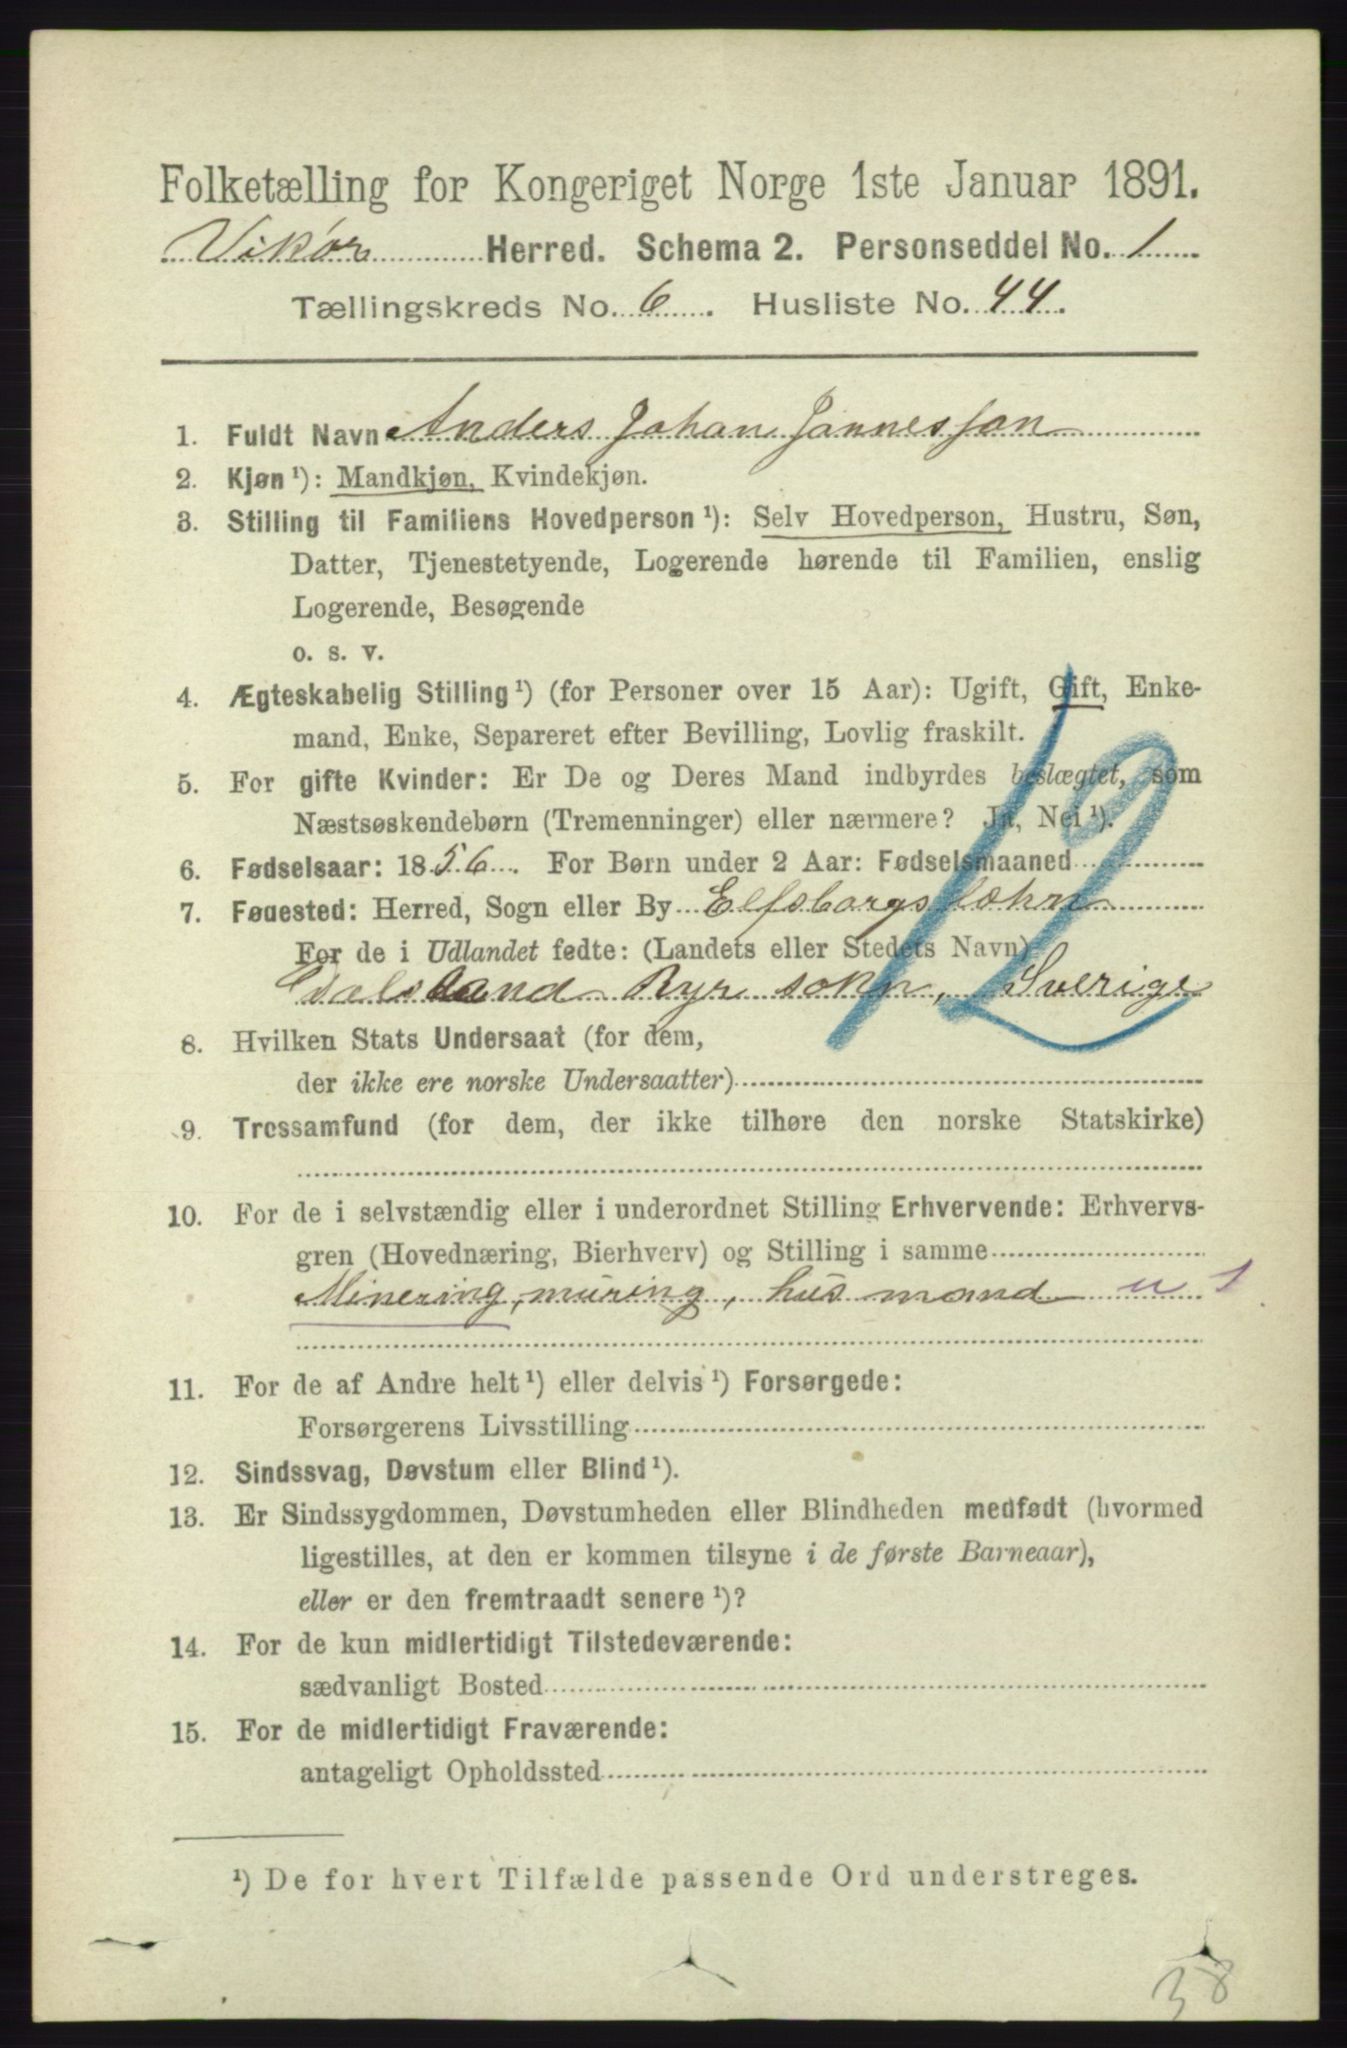 Folketælling for Kongeriget Norge 1ste Januar 1891.
Vikør Herred. Schema 2. Personseddel No. 1
Tællingskreds No. 6. Husliste No. 44.
1. Fuldt Navn Anders Johan Jannesson
2. Kjøn ¹): Mandkjøn, Kvindekjøn.
3. Stilling til Familiens Hovedperson ¹): Selv Hovedperson, Hustru, Søn,
Datter, Tjenestetyende, Logerende hørende til Familien, enslig
Logerende, Besøgende
o. s. v.
4. Ægteskabelig Stilling ¹) (for Personer over 15 Aar): Ugift, Gift, Enke-
mand, Enke, Separeret efter Bevilling, Lovlig fraskilt.
5. For gifte Kvinder: Er De og Deres Mand indbyrdes beslægtet, som
Næstsøskendebørn (Tremenninger) eller nærmere? Ja, Nei ¹).
12
6. Fødselsaar: 1856. For Børn under 2 Aar: Fødselsmaaned
7. Fødested: Herred, Sogn eller By Elfsborgs
For de i Udlandet fødte: (Landets eller Stedets Navn)
Dalsland Ryr sokn, Sverige
8. Hvilken Stats Undersaat (for dem,
der ikke ere norske Undersaatter)
9. Trossamfund (for dem, der ikke tilhøre den norske Statskirke)
10. For de i selvstændig eller i underordnet Stilling Erhvervende: Erhvervs-
gren (Hovednæring, Bierhverv) og Stilling i samme
Minering, muring, husmand u 1
11. For de af Andre helt ¹) eller delvis ¹) Forsørgede:
Forsørgerens Livsstilling
12. Sindssvag, Døvstum eller Blind ¹).
13. Er Sindssygdommen, Døvstumheden eller Blindheden medfødt (hvormed
ligestilles, at den er kommen tilsyne i de første Barneaar),
eller er den fremtraadt senere ¹)?
14. For de kun midlertidigt Tilstedeværende:
sædvanligt Bosted
15. For de midlertidigt Fraværende:
antageligt Opholdssted
¹) De for hvert Tilfælde passende Ord understreges.
38